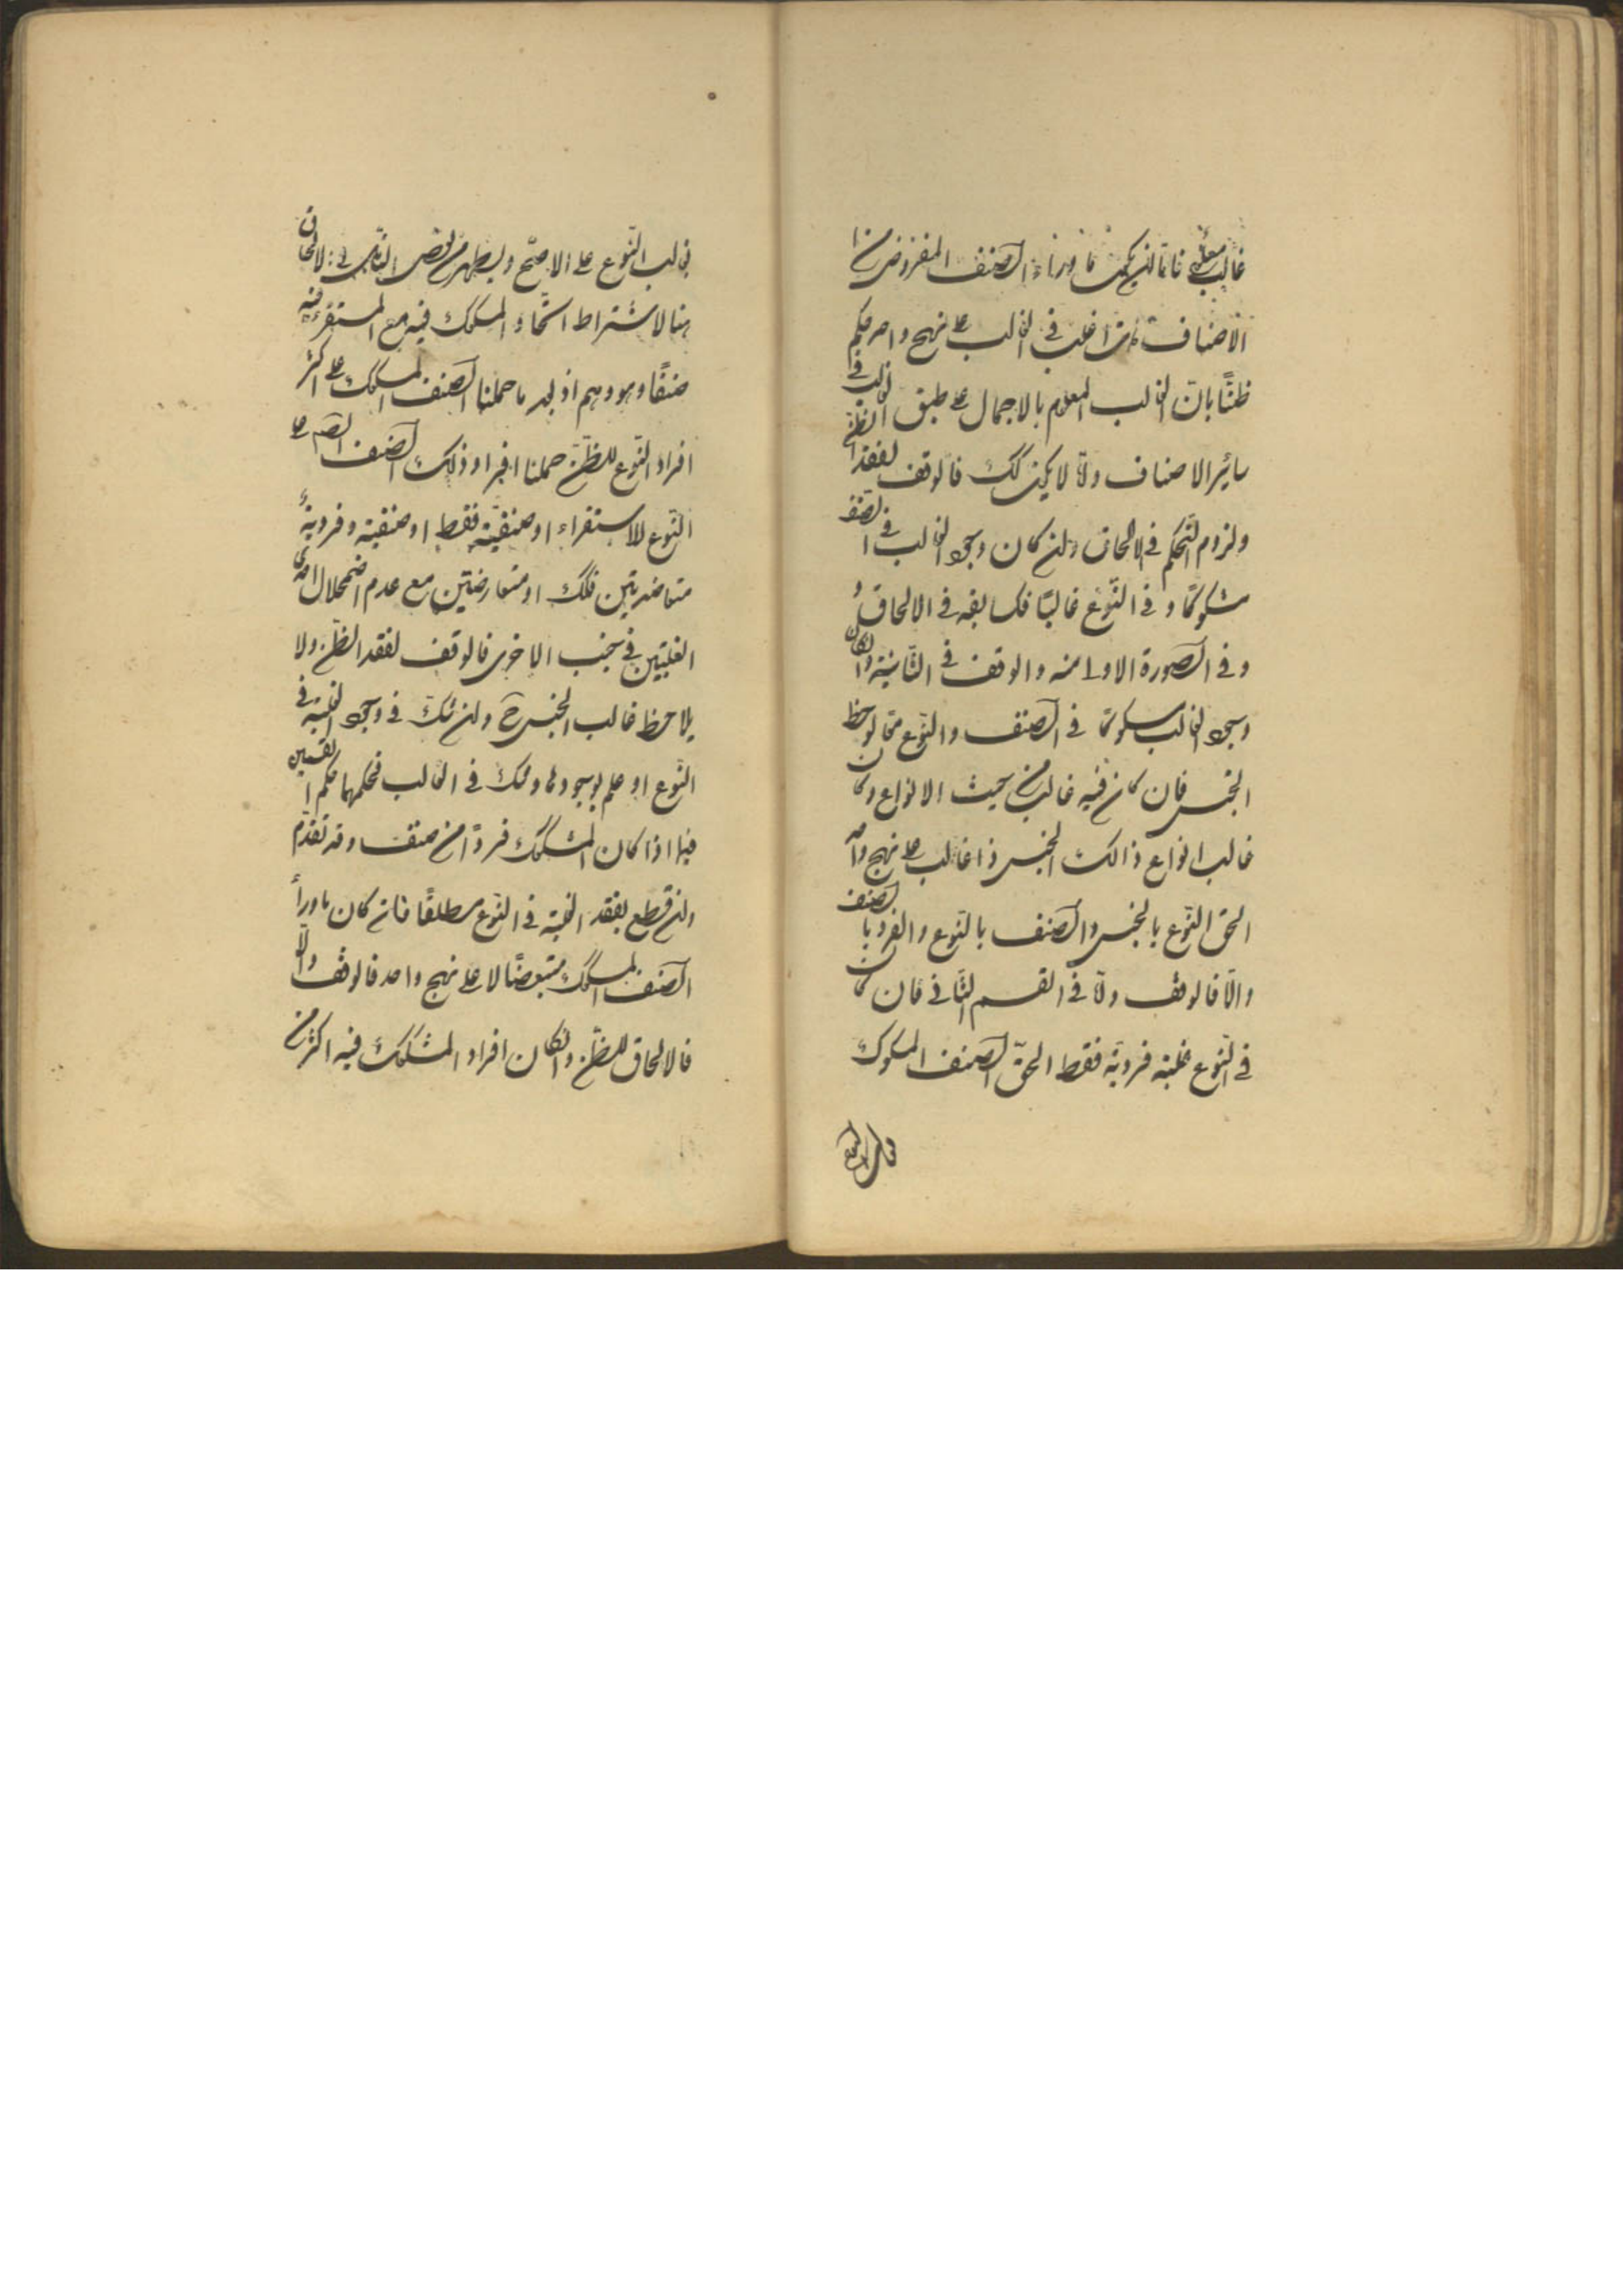 غالب معلوم فاما ان يكون ما وراء الصنف المفروض من
الاصناف ذات اغلب فى الغالب على نهج واحد حكم
ظنًا بان الغالب المعلوم بالاجمال على طبق الغالب فى
ساير الاصناف والا لا يكن كك فالوقف لفقد الظن
ولزوم التحكم فى الالحاق وان كان وجود الغالب فى الصنف
مشكوكا و فى النوع غالبا فكسابقه فى الالحاق
و فى الصورة الاولى منه والوقف فى الثانية وان كان
وجود الغالب مشكوكا فى الصنف والنوع معا لوحظ
الجنس فان كان فيه غالب من حيث الانواع وكان
غالب انواع ذالك الجنس ذا غالب على نهج واحد
الحق النوع بالجنس والصنف بالنوع والفرد بالصنف
والا فالوقف والا فى القسم الثانى فان كان
فى النوع غلبة فردية فقط الحق الصنف المشكوك
بغالب النوع على الاصح ويظهر من بعض الناس فى الالحاق
هنا لاشتراط اتحاد المشكوك فيه مع المستقرء فيه
صنفًا وهو وهم اذ بعد ما حملنا الصنف المشكوك على اكثر
افراد النوع للظن حملنا افراد ذلك الصنف ايضا على
النوع للاستقراء او صنفية فقط او صنفية وفردية
متعاضدتين فكك او متعارضتين مع عدم اضمحلال احدى
الغلبتين فى جنب الاخرى فالوقف لفقد الظن ولا
يلاحظ غالب الجنس ح وان شك فى وجود الغلبة فى
النوع او علم بوجودها وشك فى الغالب فحكمهما حكم القسمين
فيما اذا كان المشكوك فردًا من صنف وقد تقدم
وان قطع بفقد الغلبة فى النوع مطلقًا فان كان ماوراء
الصنف المشكوك متبعضًا لا على نهج واحد فالوقف والا
فالالحاق للظن وان كان افراد المشكوك فيه اكثر من